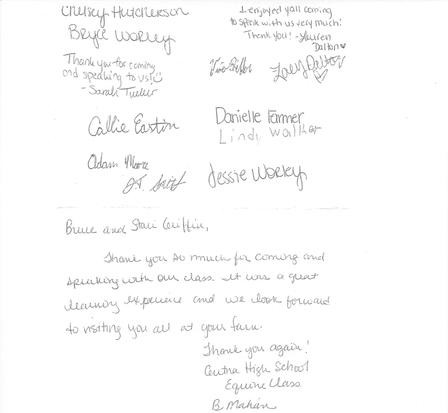 Chelsey Hutcherson
Bryce Worley
I enjoyed yall coming
to speak with us very much!
Thank you! - Lauren
Dalton
Thank you for coming
and speaking to us!
- Sarah Tucker
Lacy Dalton
Callie Easton
Danielle Farmer
Lindi Walker
Adam Moore
J.T. Smith
Jessie Worley
Bruce and Staci Griffin,
Thank you so much for coming and
speaking with our class. It was a great
learning experience and we look forward
to visiting you all at your farm.
Thank you again!
Centra High School
Equine Class
B. Mahan